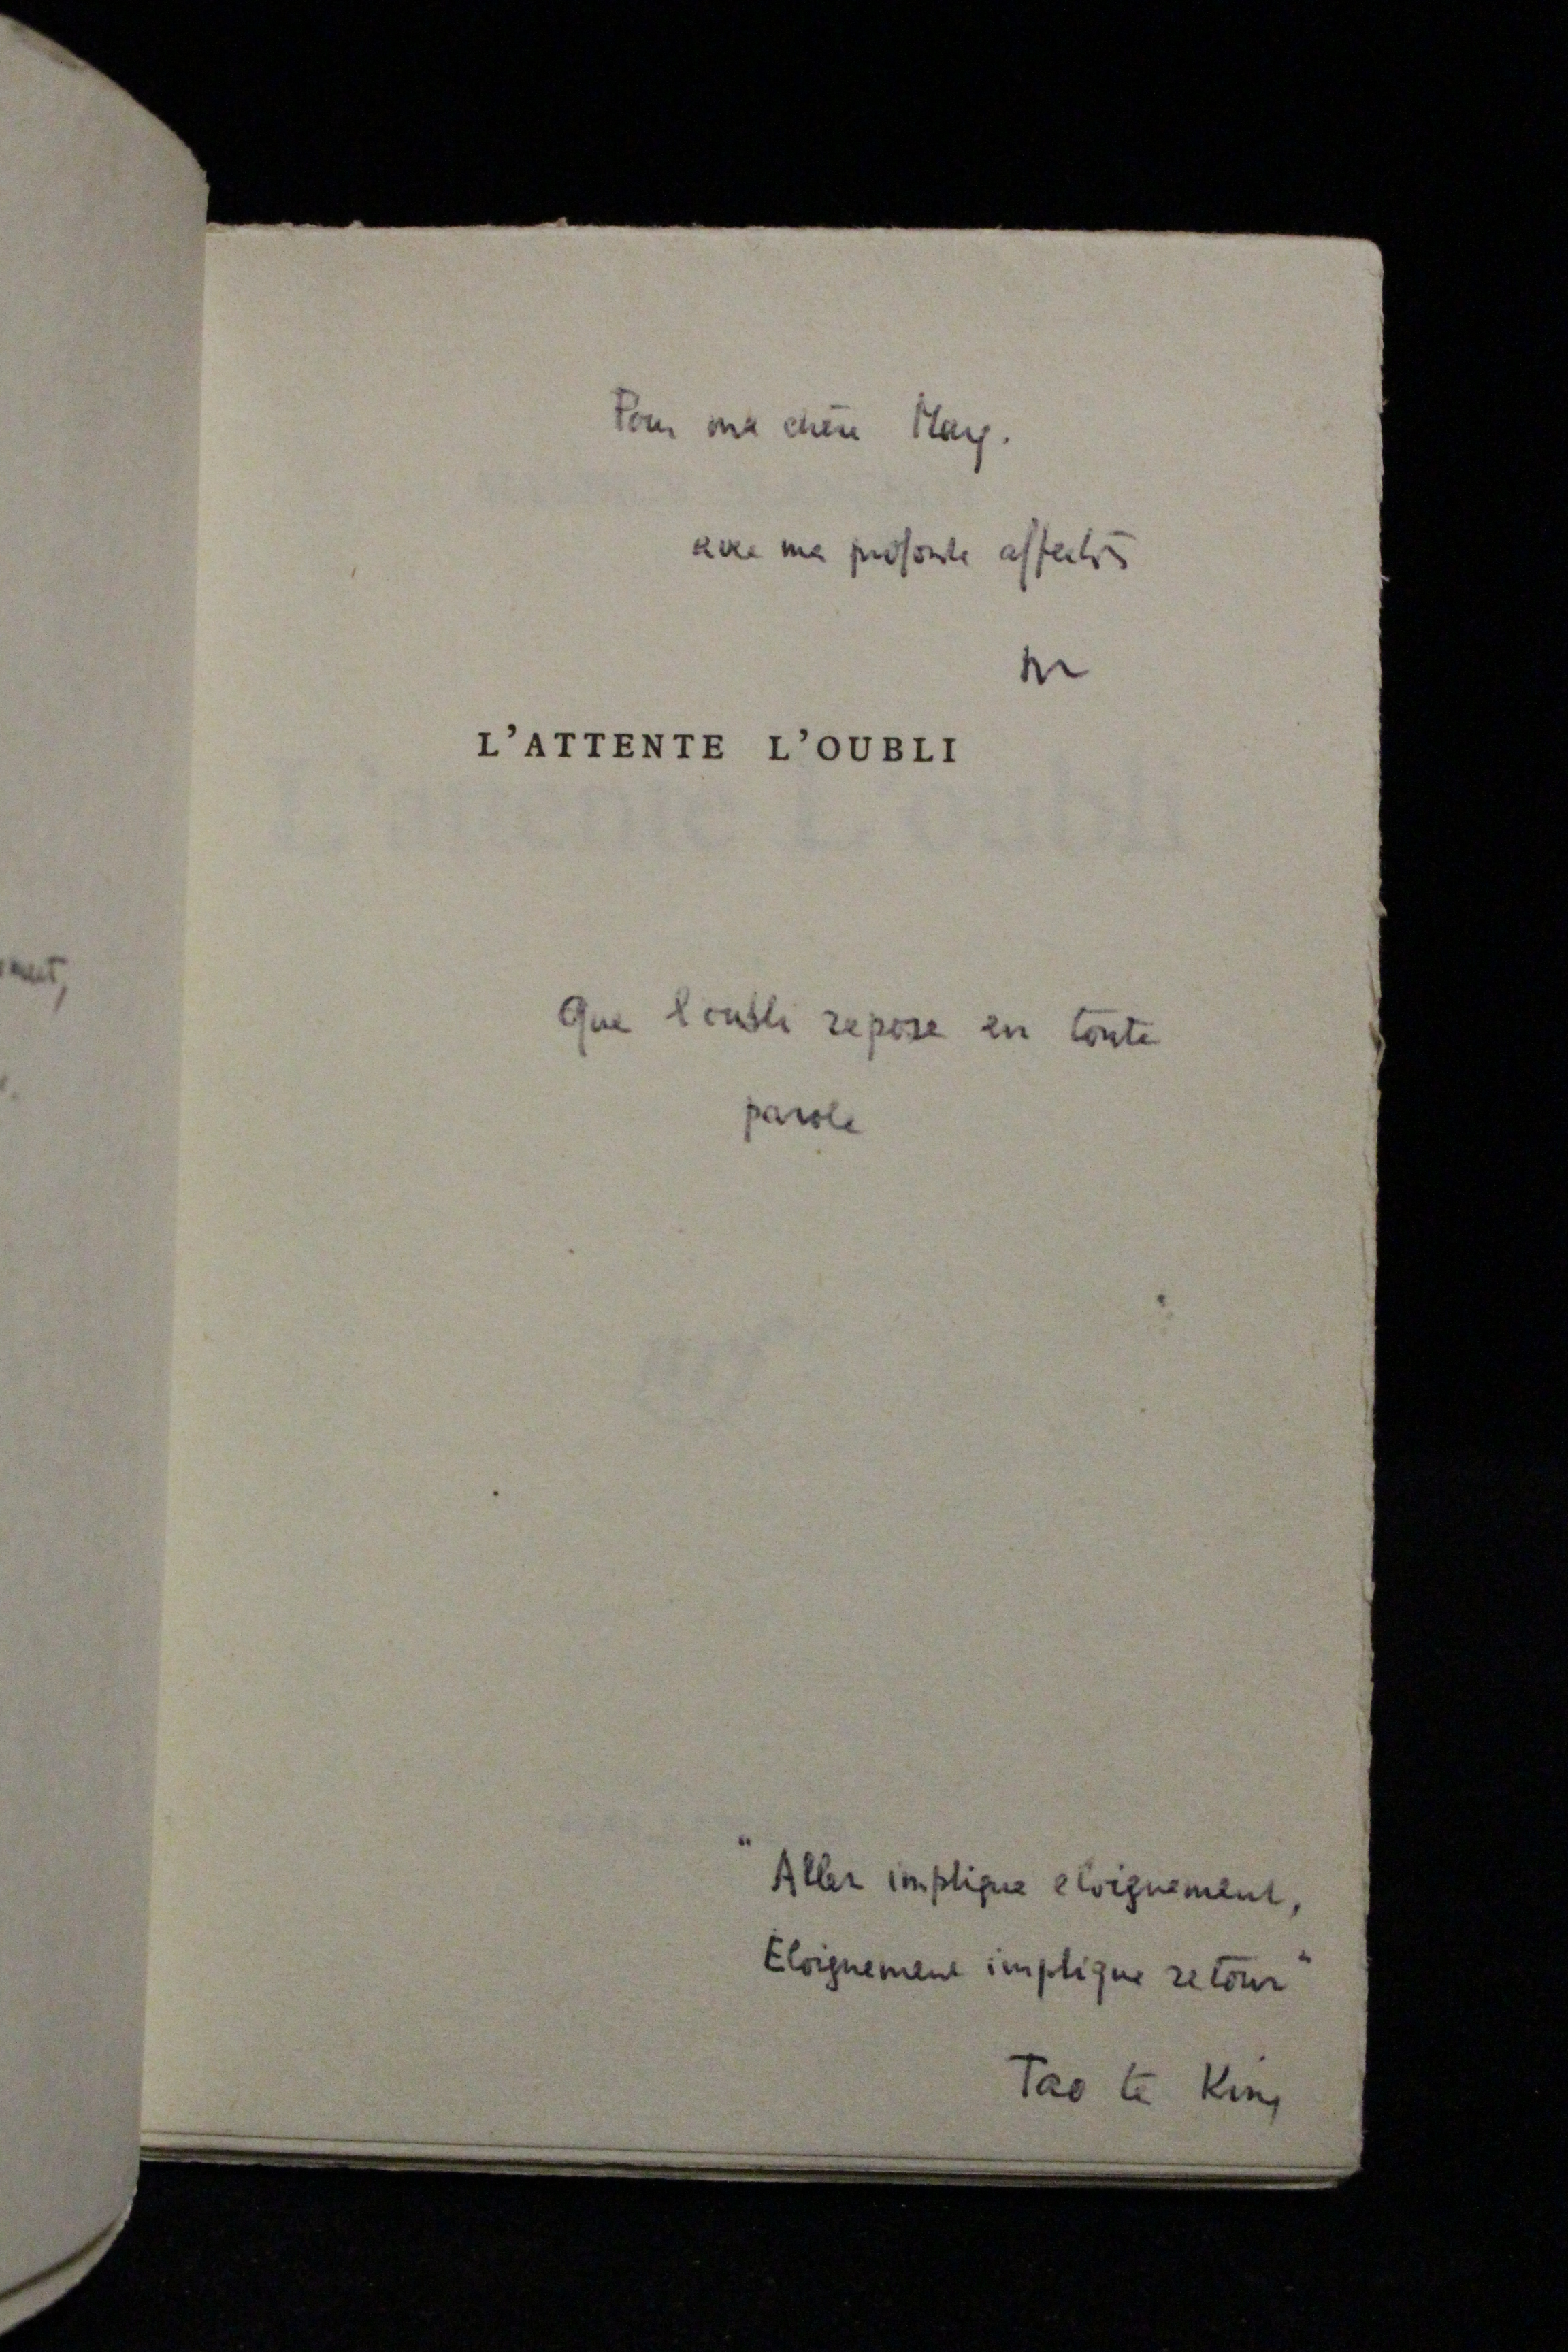 Pour ma chère Mary.
avec ma profonde affection
L'ATTENTE L'OUBLI
Que l'oubli repose en toute
parole
"Aller implique eloignement,
Eloignement implique retour"
Tao te King